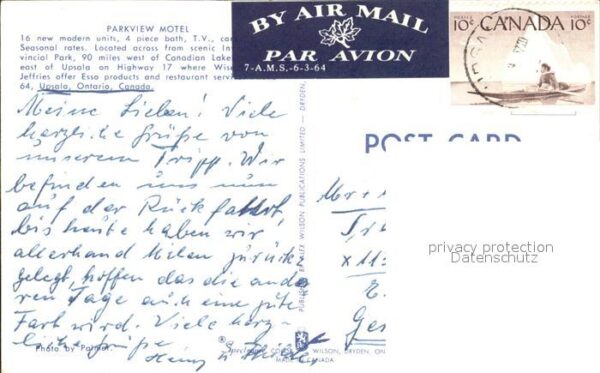 PARKVIEW MOTEL
16 new modern units, 4 piece bath, T.V., car
Seasonal rates. Located across from scenic In
vincial Park, 90 miles west of Canadian Lake
east of Upsala on Highway 17 where Wise
Jeffries offer Esso products and restaurant serv
64, Upsala, Ontario, Canada.
BY AIR MAIL
PAR AVION
7-A.M.S.-6-3-64
POSTES POSTAGE
10c CANADA 10c
POST CARD
Meine Lieben! Viele
herzliche Grüße von
unserem Tripp. Wir
befinden uns nun
auf der Rückfahrt,
bis heute haben wir
allerhand Milen zurück
gelegt, hoffen das die ande
ren Tage auch eine gute
Fart wird. Viele herz-
liche Grüße
Heinz u.
Photo by Palmer.
PUBLISHED BY ALEX WILSON PUBLICATIONS LIMITED — DRYDEN,
Mr +
x 11
Ges
privacy protection
Datenschutz
WILSON, DRYDEN, ON
MADE CANADA